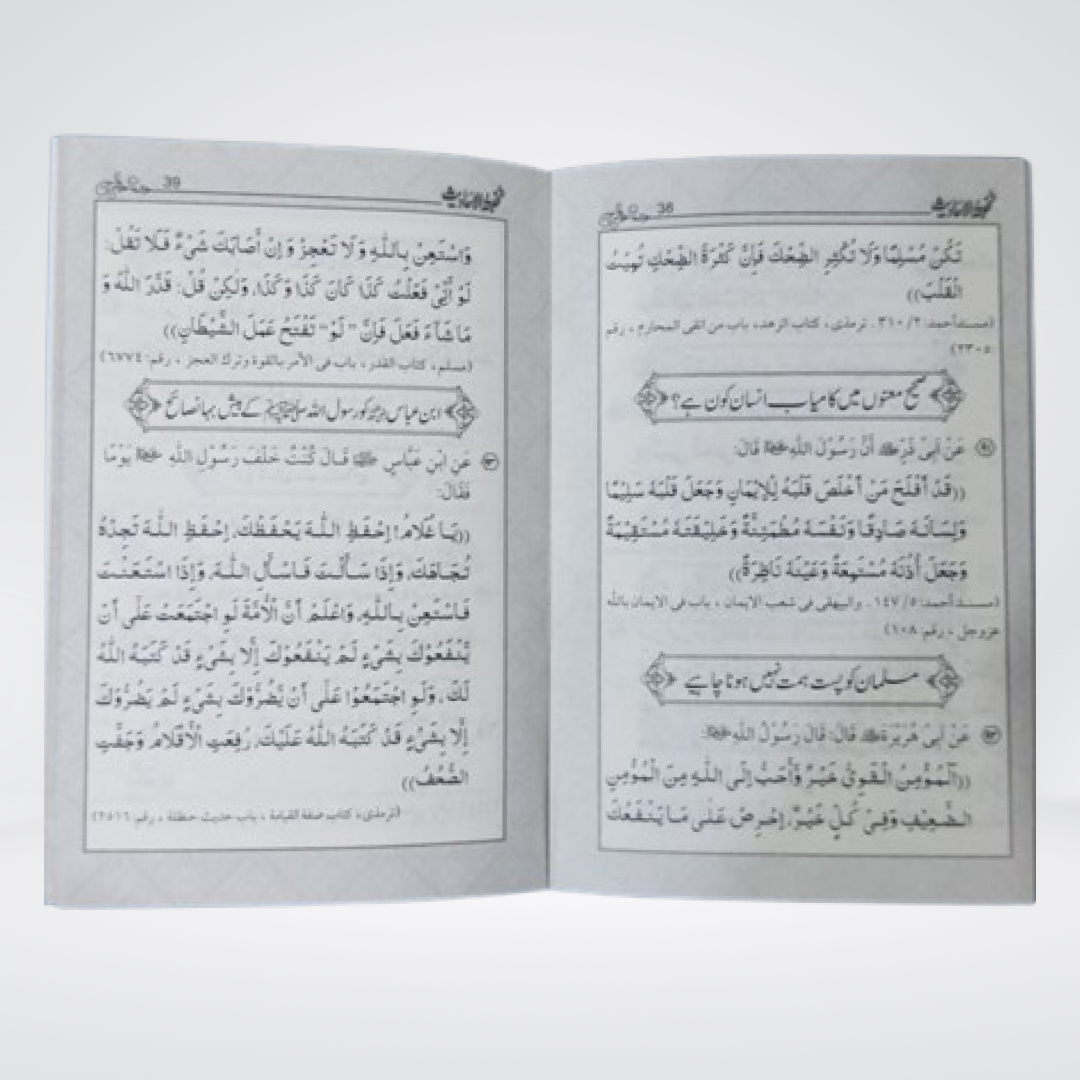 38
تَكُنْ مُسْلِمًا وَلَا تُكْثِرِ الضِّحْكَ فَإِنَّ كَثْرَةَ الضِّحْكِ تُمِيْتُ
الْقَلْبَ))
(مسند أحمد: ٣١٠/٢۔ ترمذی، كتاب الزهد، باب من اتقى المحارم، رقم
:٢٣٠٥)
صحیح معنوں میں کامیاب انسان کون ہے؟
عَنْ اَبِىْ ذَرٍّ اَنَّ رَسُوْلَ اللّٰهِ ﷺ قَالَ:
((قَدْ أَفْلَحَ مَنْ أَخْلَصَ قَلْبَهُ لِلْإِيْمَانِ وَجَعَلَ قَلْبَهُ سَلِيْمًا
وَلِسَانَهُ صَادِقًا وَنَفْسَهُ مُطْمَئِنَّةً وَخَلِيْقَتَهُ مُسْتَقِيْمَةً
وَجَعَلَ أُذُنَهُ مُسْتَمِعَةً وَعَيْنَهُ نَاظِرَةً))
(مسند أحمد: ١٤٧/٥۔ والبيهقى فى شعب الايمان، باب فى الايمان بالله
عزوجل، رقم: ١٠٨)
مسلمان کو پست ہمت نہیں ہونا چاہیے
عَنْ اَبِىْ هُرَيْرَةَ قَالَ: قَالَ رَسُوْلُ اللّٰهِ ﷺ:
((اَلْمُؤْمِنُ الْقَوِىُّ خَيْرٌ وَّأَحَبُّ إِلَى اللّٰهِ مِنَ الْمُؤْمِنِ
الضَّعِيْفِ وَفِىْ كُلٍّ خَيْرٌ، اِحْرِصْ عَلٰى مَا يَنْفَعُكَ
39
وَاسْتَعِنْ بِاللّٰهِ وَلَا تَعْجِزْ وَإِنْ أَصَابَكَ شَىْءٌ فَلَا تَقُلْ:
لَوْ أَنِّىْ فَعَلْتُ كَذَا كَانَ كَذَا وَكَذَا، وَلٰكِنْ قُلْ: قَدَّرَ اللّٰهُ وَ
مَا شَآءَ فَعَلَ فَإِنَّ "لَوْ" تَفْتَحُ عَمَلَ الشَّيْطَانِ))
(مسلم، كتاب القدر، باب فى الأمر بالقوة وترك العجز، رقم: ٦٧٧٤)
ابن عباس کو رسول اللہ ﷺ کے بیش بہا نصائح
عَنِ ابْنِ عَبَّاسٍ قَالَ كُنْتُ خَلْفَ رَسُوْلِ اللّٰهِ ﷺ يَوْمًا
فَقَالَ:
((يَا غُلَامُ! اِحْفَظِ اللّٰهَ يَحْفَظْكَ، اِحْفَظِ اللّٰهَ تَجِدْهُ
تُجَاهَكَ، وَإِذَا سَأَلْتَ فَاسْأَلِ اللّٰهَ، وَإِذَا اسْتَعَنْتَ
فَاسْتَعِنْ بِاللّٰهِ، وَاعْلَمْ أَنَّ الْأُمَّةَ لَوِ اجْتَمَعَتْ عَلٰى أَنْ
يَّنْفَعُوْكَ بِشَىْءٍ لَمْ يَنْفَعُوْكَ إِلَّا بِشَىْءٍ قَدْ كَتَبَهُ اللّٰهُ
لَكَ، وَلَوِ اجْتَمَعُوْا عَلٰى أَنْ يَّضُرُّوْكَ بِشَىْءٍ لَمْ يَضُرُّوْكَ
إِلَّا بِشَىْءٍ قَدْ كَتَبَهُ اللّٰهُ عَلَيْكَ، رُفِعَتِ الْأَقْلَامُ وَجَفَّتِ
الصُّحُفُ))
(ترمذی، كتاب صفة القيامة، باب حديث حنظلة، رقم ٢٥١٦)